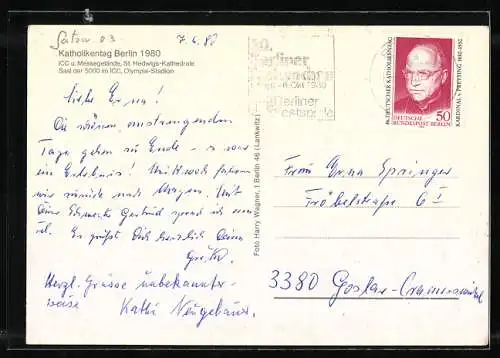 7.6.80
Katholikentag Berlin 1980
ICC u. Messegelände, St. Hedwigs-Kathedrale
Saal der 5000 im ICC, Olympia-Stadion
Liebe Erna!
Die schönen, anstrengenden
Tage gehen zu Ende - s war
ein Erlebnis! Mittwoch fahren
wir zurück nach Siegen. Mit
Deiner Schwester Gertrud sprach ich
Es grüßt Dich herzlich Deine
Herzl. Grüsse unbekannter-
weise Käthi Neugebauer
Foto Harry Wagner, 1 Berlin 46 (Lankwitz)
30.
Berliner
Festwochen
Okt 1980
Berliner
Festspiele
86. DEUTSCHER KATHOLIKENTAG
KARDINAL v PREYSING 1880-1950
DEUTSCHE
BUNDESPOST BERLIN
50
Frau Erna Springer
Fröbelstraße 6 I
3380 Goslar-